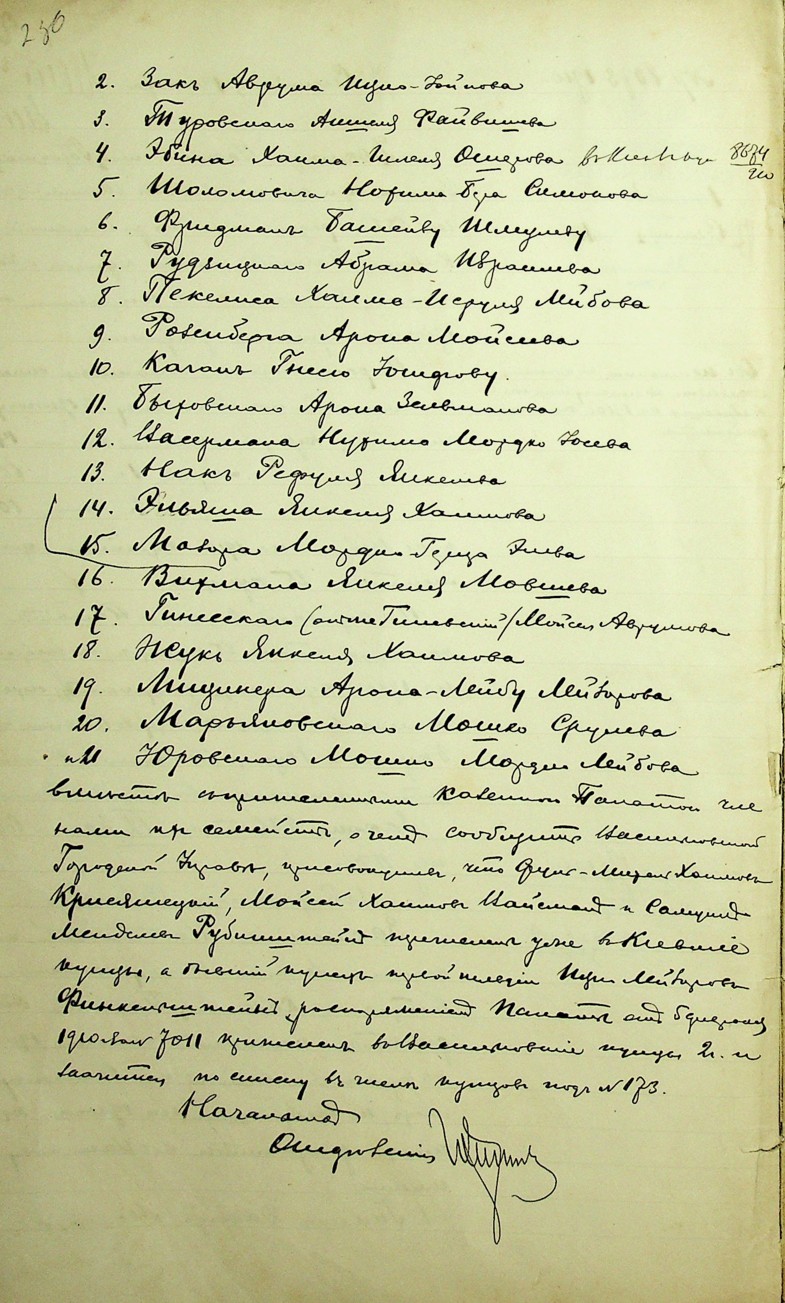 2. Закъ Аврума Ицко-
3. Туровскаго Аншеля Файвишева
4. Эбина Хаима-Шлемя Ошерова 8674
5. Шоломовича Нохима Бера Симонова
6. Фридманъ Башейву Шмулеву
7. Рудзицкаго Абрама Израилева
8. Пекелиса Хаима-Исруля Лейбова
9. Розенберга Арона Мойсеева
10. Каганъ Гнесю
11. Быховскаго Арона Зельманова
12. Васермана Нухима Мордко Іосева
13. Накъ Рефуля Янкелева
14. Эльяша Янкеля Хаимова
15. Мазора Мордко-Герца Элева
16. Вихмана Янкеля Мовшева
17. Гинесскаго / Мойсея Аврумова
18. Жукъ Янкеля Хаимова
19. Арона-Лейбу Лейзорова
20. Марьяновскаго Мошко Срулева
и 21 Юровскаго Мошко Мордко Лейбова
вмѣстѣ съ причисленными Казенной Палатой чле
нами ихъ семействъ, о чемъ сообщить Васильковской
Городской Управѣ, присовокупляя, что Хаимовъ
Мойсей Хаимовъ Вайсманъ и Самуилъ
Менделевъ Рубинштейнъ причислены уже въ Кіевскіе
купцы, а бывшій купецъ первой гильдіи Ицко Лейзоровъ
Финкельштейнъ, распоряженіемъ Палаты отъ 5 февраля
1910 за № 7011 причисленъ въ Васильковскіе купцы 2 г. и
значится по списку въ числѣ купцовъ подъ № 173.
Начальникъ
Отдѣленія